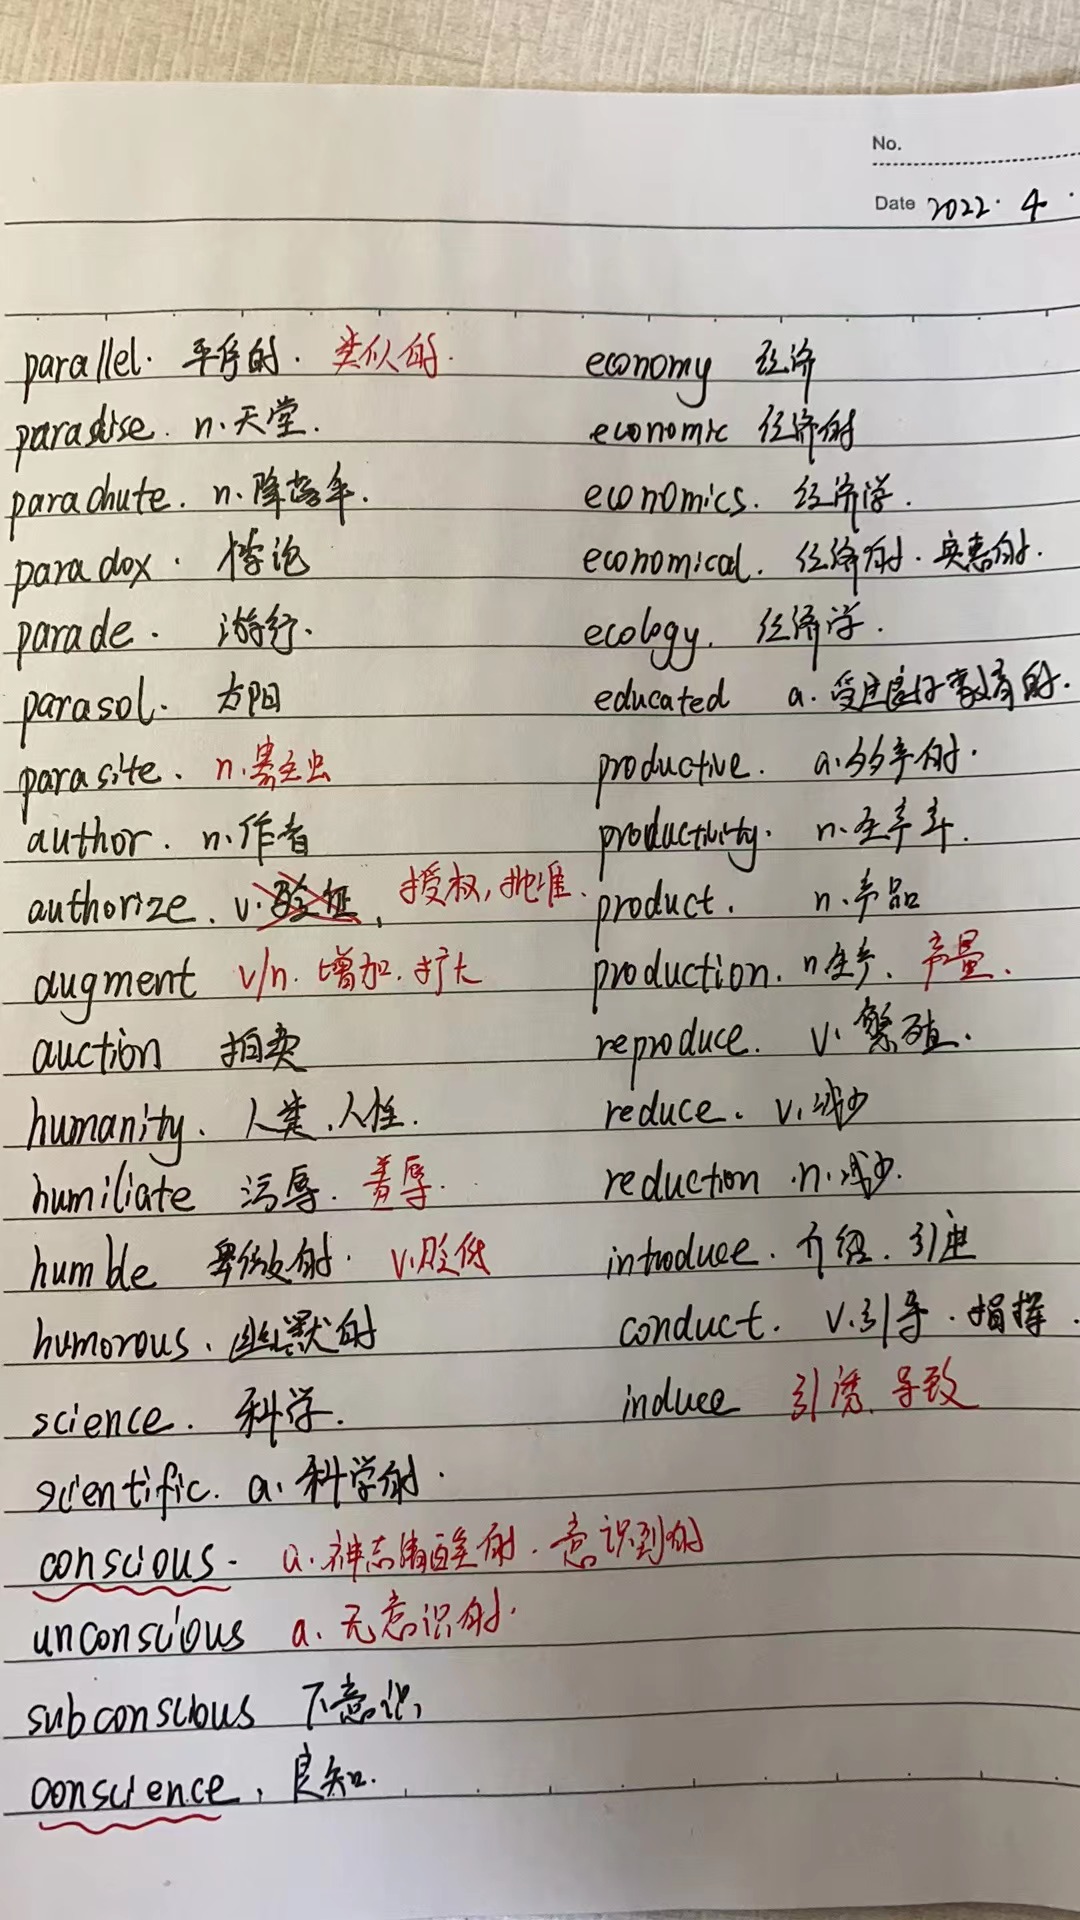 No.
Date 2022. 4.
parallel. 平行的. 类似的.
paradise. n.天堂.
parachute. n.降落伞.
paradox. 悖论
parade. 游行.
parasol.
parasite. n.寄生虫
author. n.作者
authorize. v.验证, 授权,批准.
augment v/n. 增加.扩大
auction 拍卖
humanity. 人类.人性.
humiliate 污辱. 羞辱.
humble 卑微的. v.贬低
humorous. 幽默的
science. 科学.
scientific. a.科学的.
conscious. a.神志清醒的.意识到的
unconscious a.无意识的.
subconscious 下意识,
conscience, 良知.
economy 经济
economic 经济的
economics. 经济学.
economical. 经济的.实惠的.
ecology. 经济学.
educated a.受过良好教育的.
productive. a.多产的.
productivity. n.生产率.
product. n.产品
production. n生产. 产量.
reproduce. v.繁殖.
reduce. v.减少
reduction .n.减少.
introduce. 介绍.引进
conduct. v.引导.指挥.
induce 引诱.导致